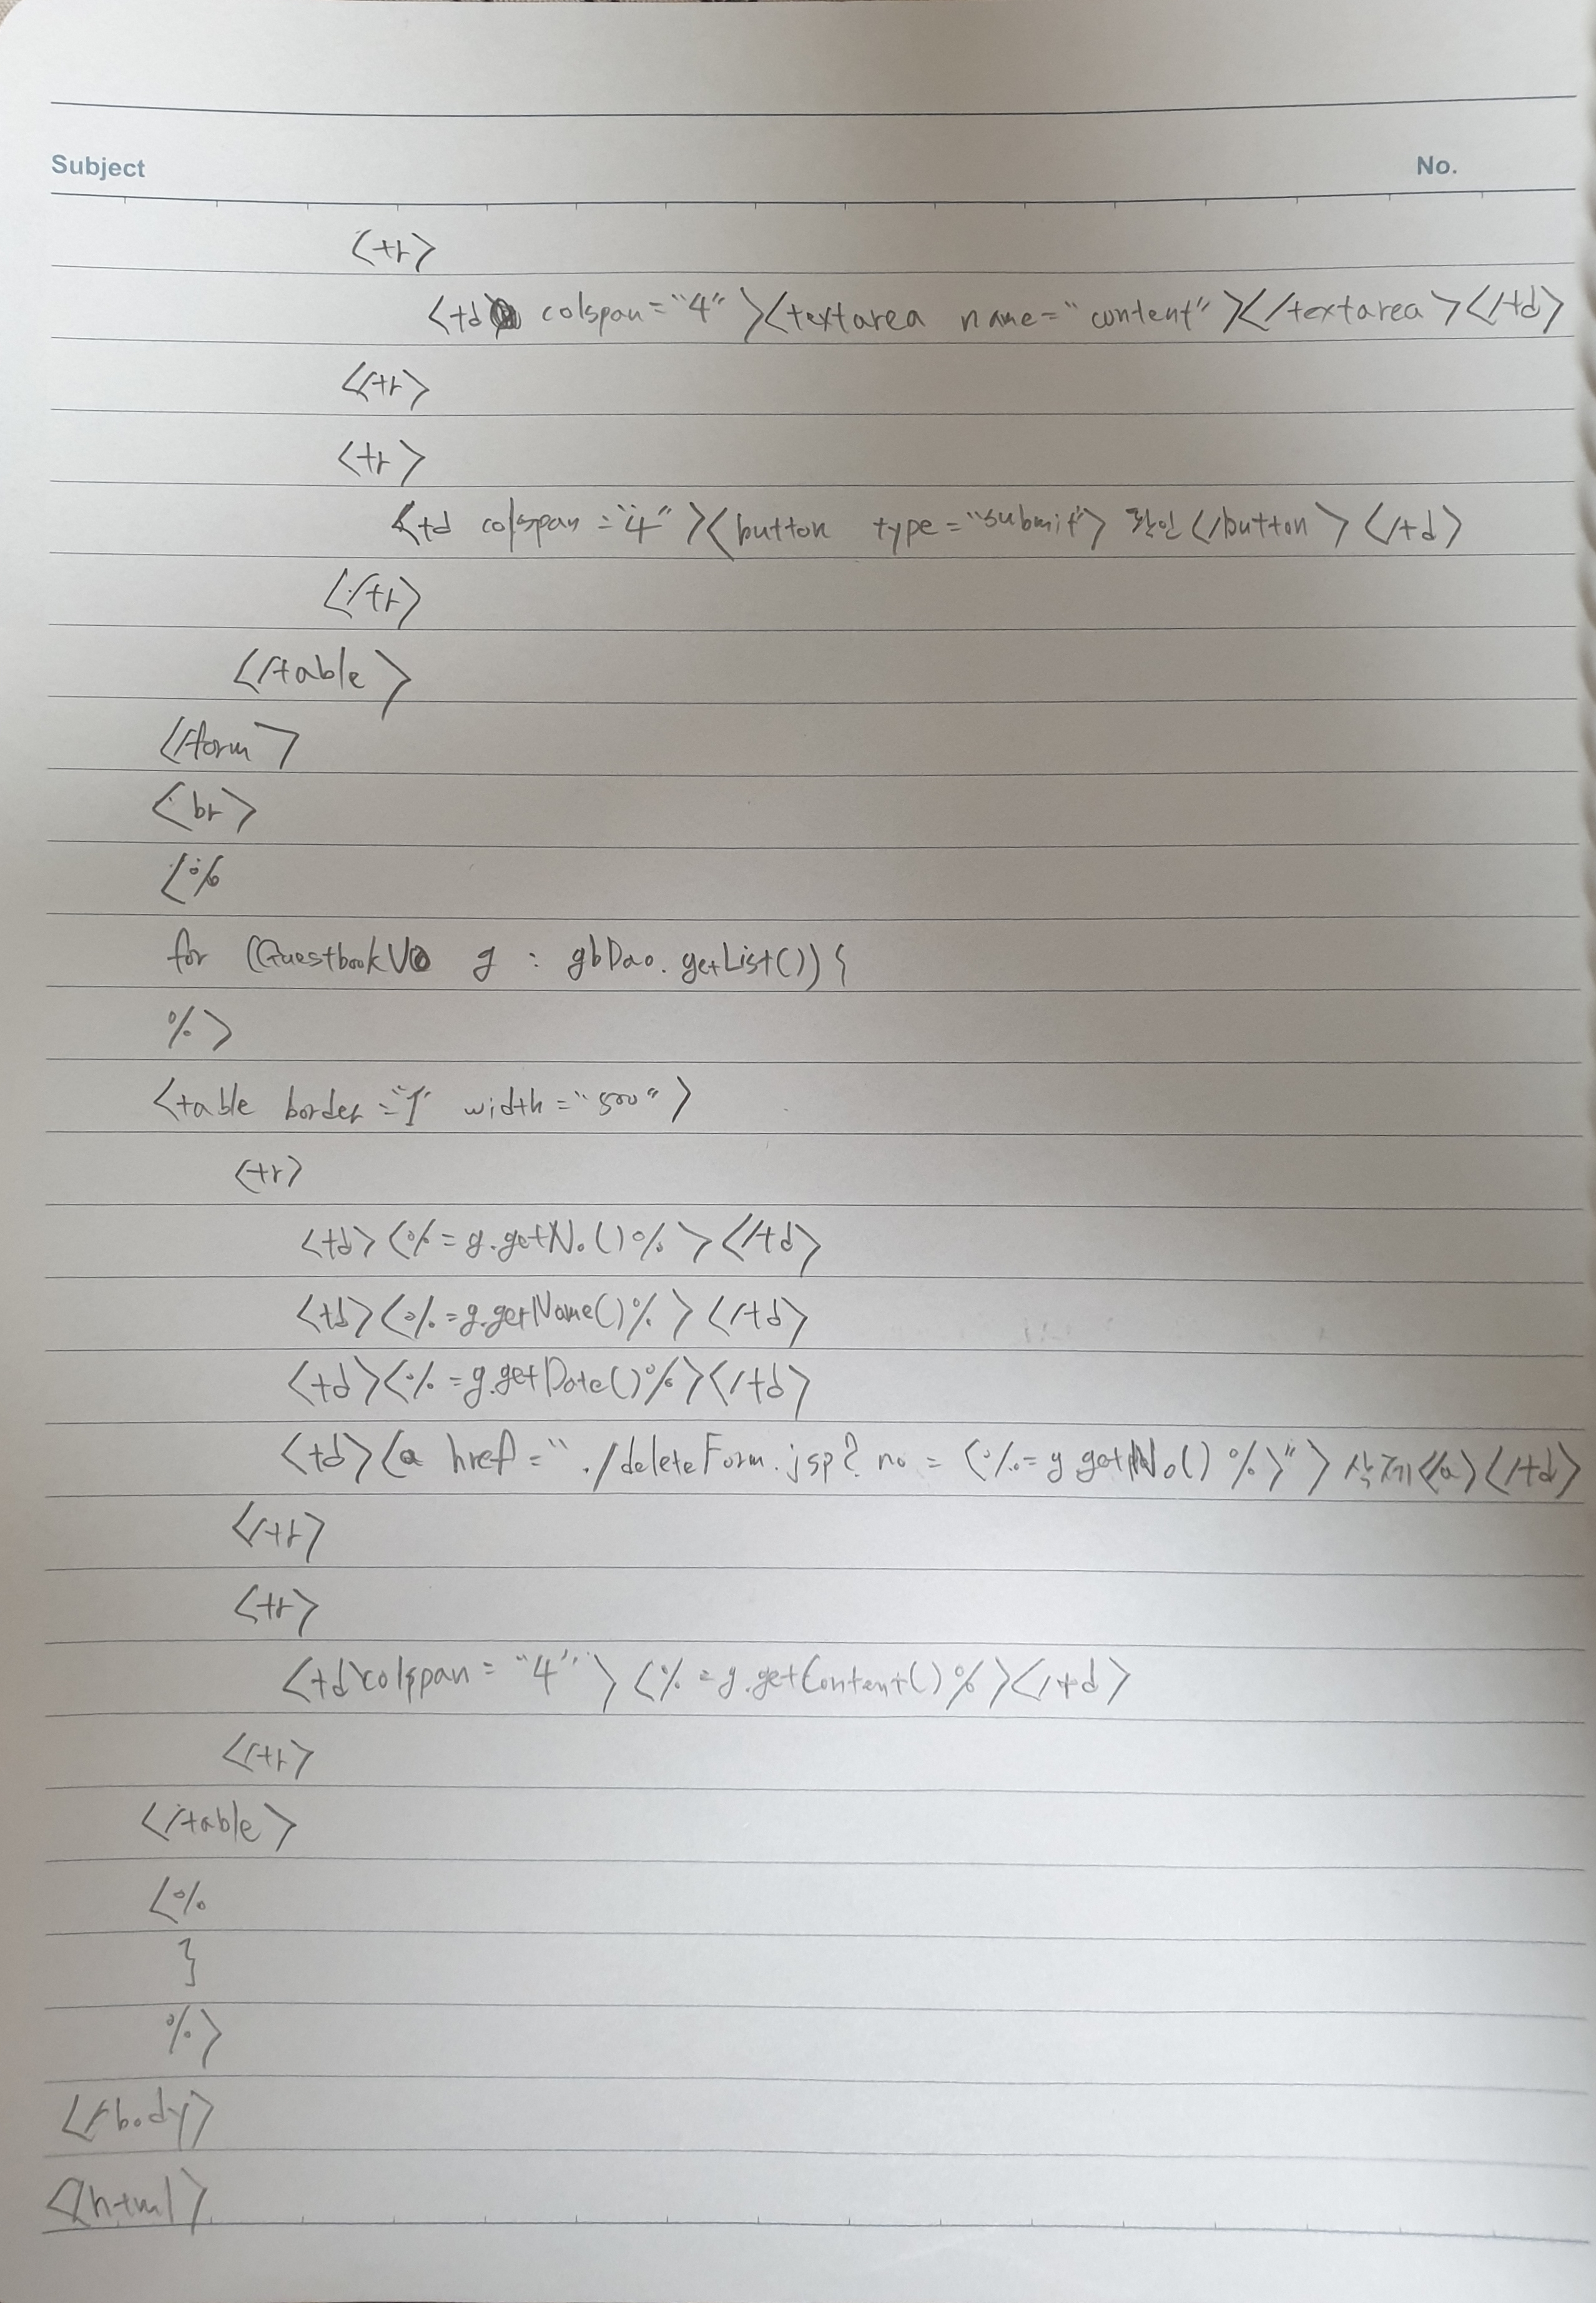 Subject No.
<tr>
<td colspan="4"><textarea name="content"></textarea></td>
</tr>
<tr>
<td colspan="4"><button type="submit">확인</button></td>
</tr>
</table>
</form>
<br>
<%
for (GuestbookVO g : gbDao.getList()){
%>
<table border="1" width="500">
<tr>
<td><%=g.getNo()%></td>
<td><%=g.getName()%></td>
<td><%=g.getDate()%></td>
<td><a href="./deleteForm.jsp?no=<%=g getNo()%>">삭제</a></td>
</tr>
<tr>
<td colspan="4"><%=g.getContent()%></td>
</tr>
</table>
<%
}
%>
</body>
</html>